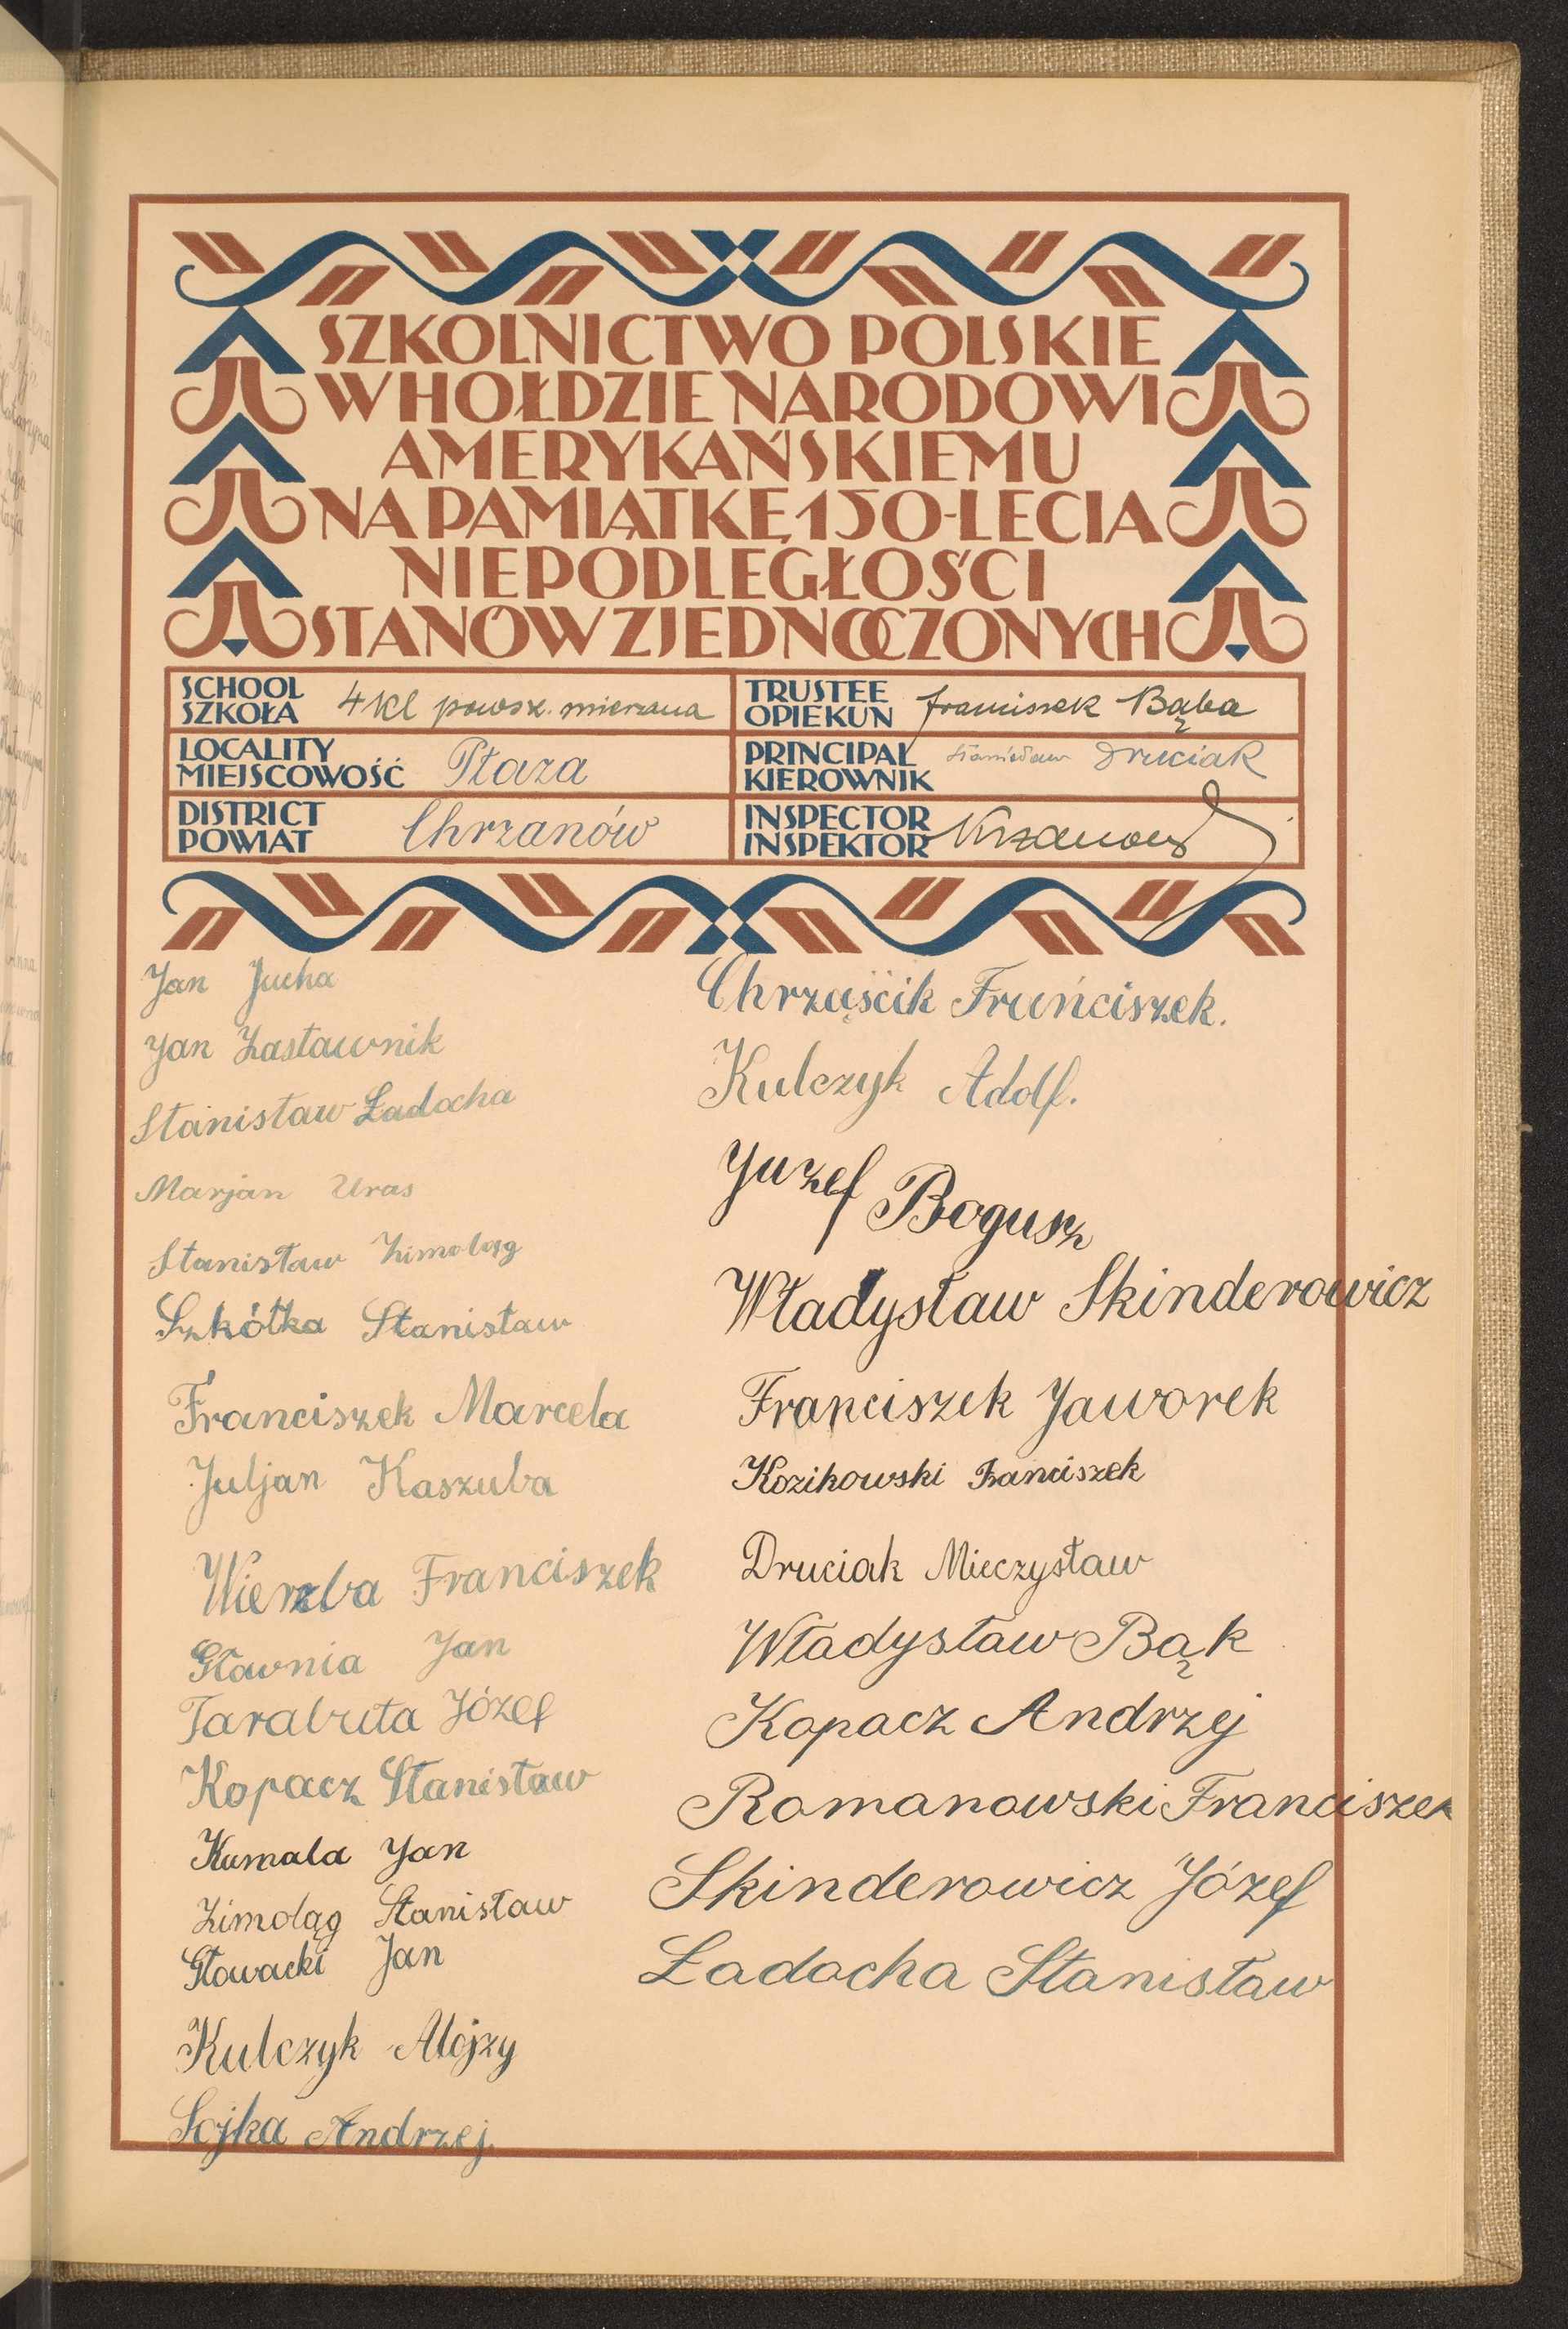 SZKOLNICTWO POLSKIE
W HOŁDZIE NARODOWI
AMERYKAŃSKIEMU
NA PAMIĄTKĘ 150-LECIA
NIEPODLEGŁOŚCI
STANÓW ZJEDNOCZONYCH
SCHOOL
SZKOŁA 4 kl powsz. mieszana
TRUSTEE
OPIEKUN Franciszek Bąba
LOCALITY
MIEJSCOWOŚĆ Płaza
PRINCIPAL
KIEROWNIK Stanisław Druciak
DISTRICT
POWIAT Chrzanów
INSPECTOR
INSPEKTOR
Jan Jucha
Jan Zastawnik
Stanisław Ładocha
Marjan Uras
Stanisław Zimoląg
Szkółka Stanisław
Franciszek Marcela
Juljan Kaszuba
Wierzba Franciszek
Głownia Jan
Tarabuta Józef
Kopacz Stanisław
Kumala Jan
Zimoląg Stanisław
Głowacki Jan
Kulczyk Alojzy
Sojka Andrzej.
Chrząścik Frańciszek.
Kulczyk Adolf.
Juzef Bogusz
Władysław Skinderowicz
Franciszek Jaworek
Kozikowski Franciszek
Druciak Mieczysław
Władysław Bąk
Kopacz Andrzej
Romanowski Franciszek
Skinderowicz Józef
Ładocha Stanisław